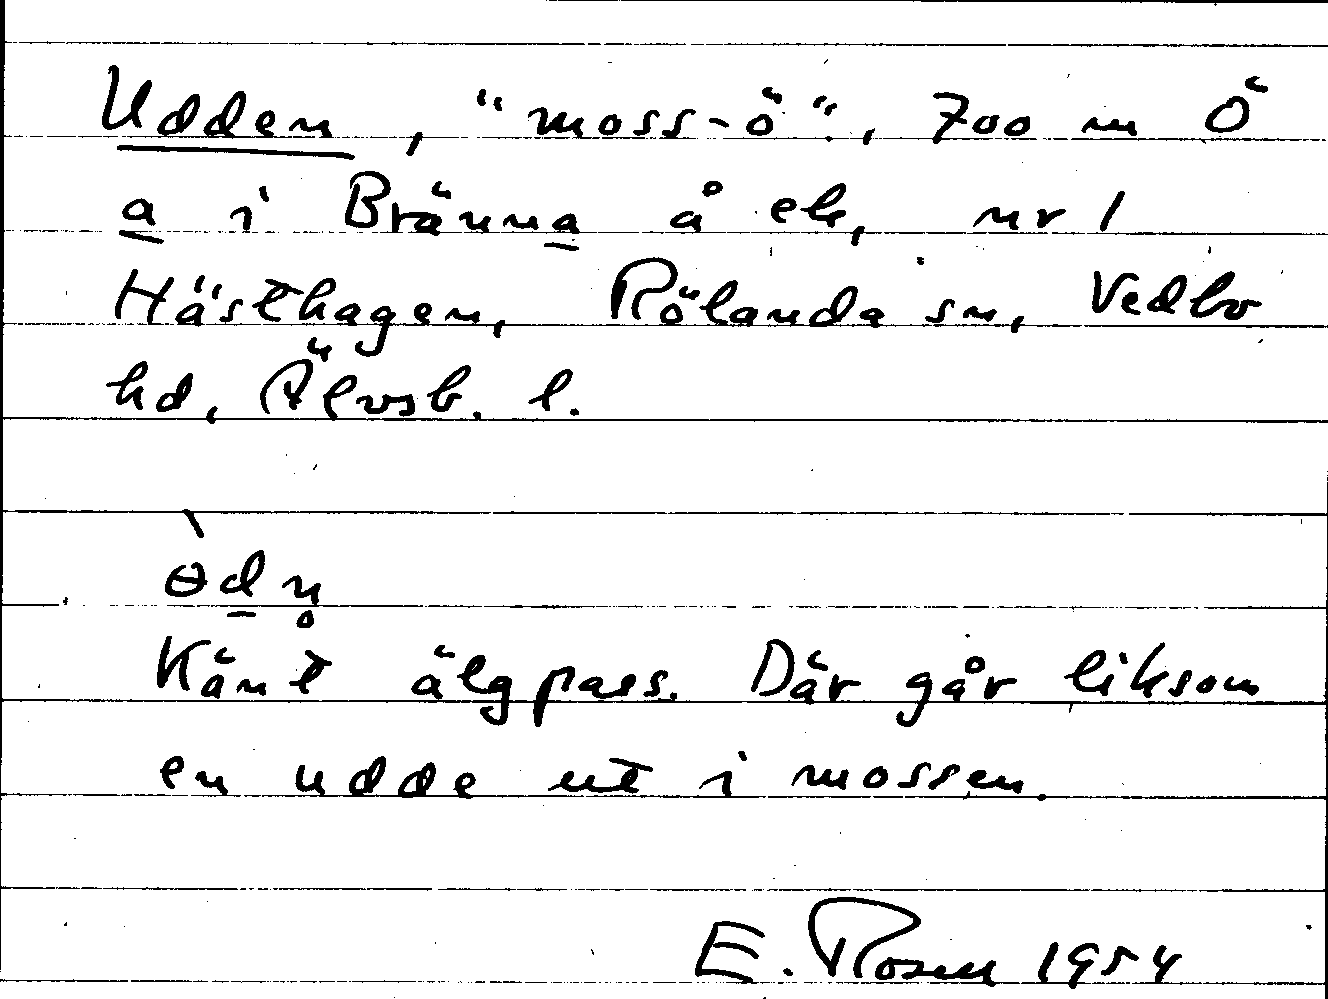 Udden, "moss-ö", 700 m Ö
a i Bränna å ek, nr 1
Hästhagen, Rölanda sn, Vedbo
hd, Älvsb. l.
ɵ̀dn̥
Känt älgpass. Där går liksom
en udde ut i mossen.
E. Rosell 1954